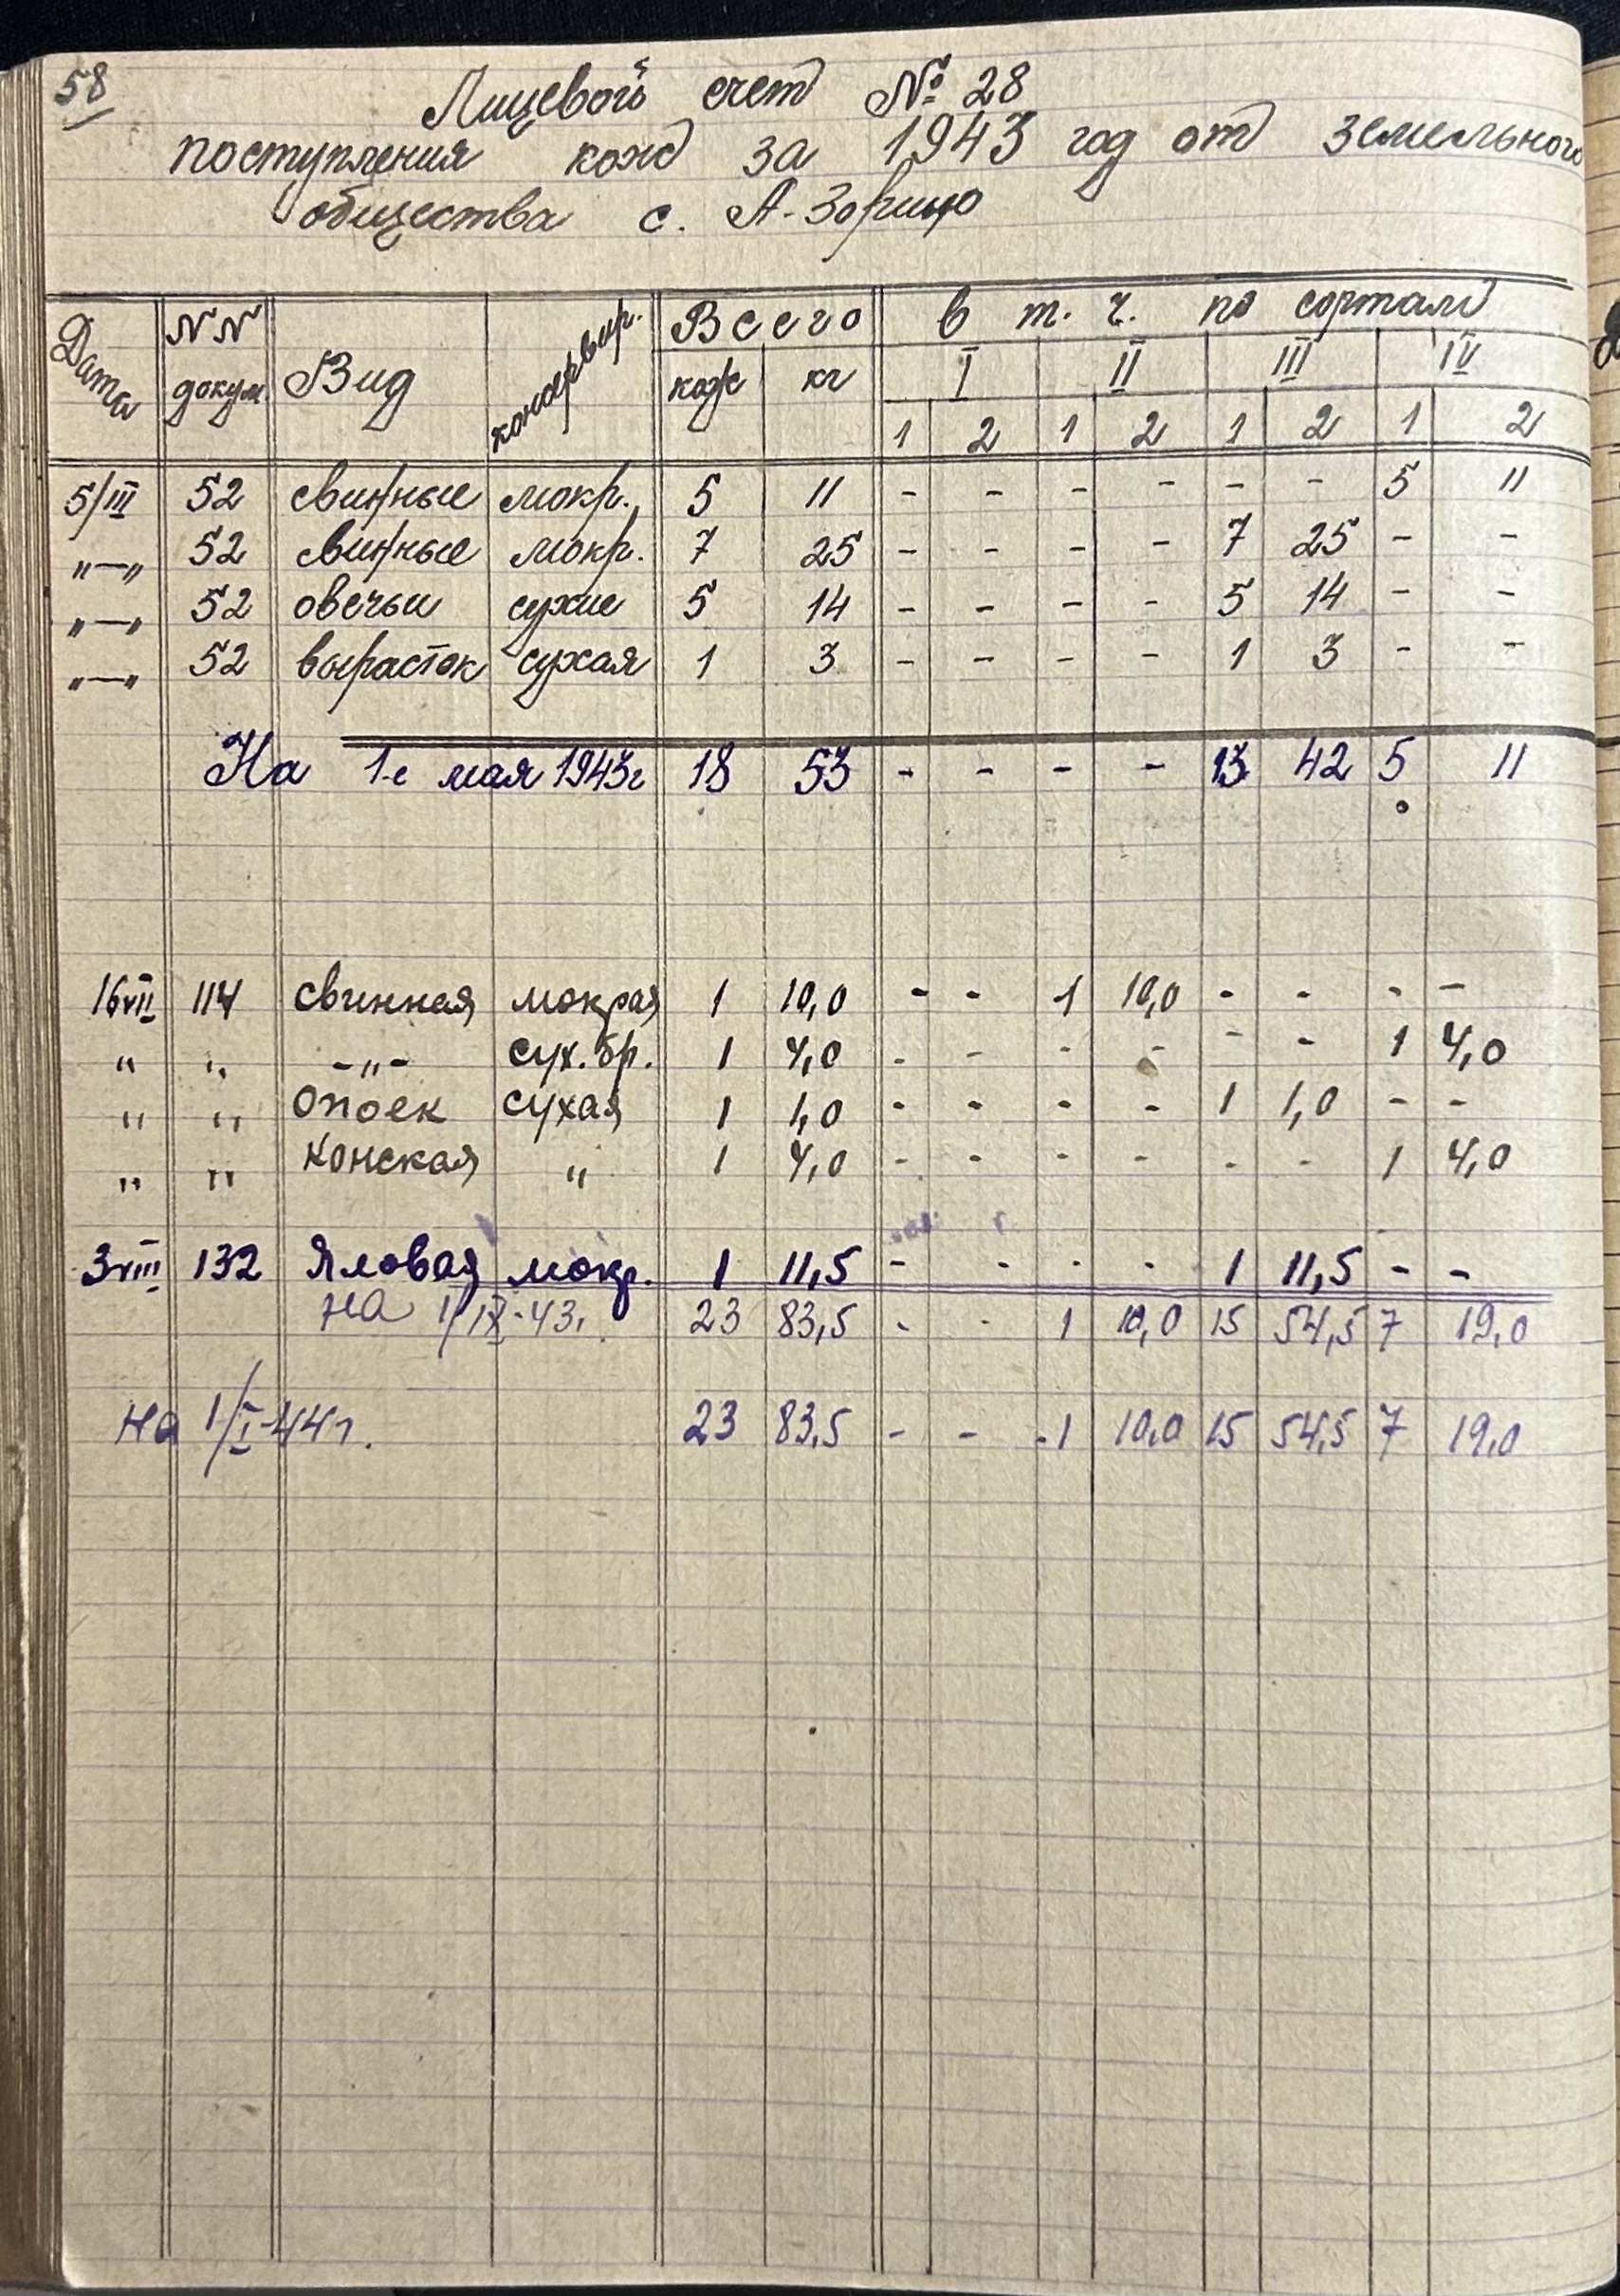 58
Лицевой счет № 28
поступления кож за 1943 год от земельного
общества с. А-Зорино
Дата NN докум. Вид консервир. Всего в т. ч. по сортам
кож кг I II III IV
1 2 1 2 1 2 1 2
5/III 52 свинные мокр. 5 11 - - - - - - 5 11
"—" 52 свинные мокр. 7 25 - - - - 7 25 - -
"—" 52 овечьи сухие 5 14 - - - - 5 14 - -
"—" 52 вырасток сухая 1 3 - - - - 1 3 - -
На 1-е мая 1943г 18 53 - - - - 13 42 5 11
16 VII 114 свинная мокрая 1 10,0 - - 1 10,0 - - - -
" " -"- сух. бр. 1 4,0 - - - - - - 1 4,0
" " опоек сухая 1 1,0 - - - - 1 1,0 - -
" " конская " 1 4,0 - - - - - - 1 4,0
3 VIII 132 Яловая мокр. 1 11,5 - - - - 1 11,5 - -
на 1/IX-43г. 23 83,5 - - 1 10,0 15 54,5 7 19,0
на 1/I-44г. 23 83,5 - - 1 10,0 15 54,5 7 19,0